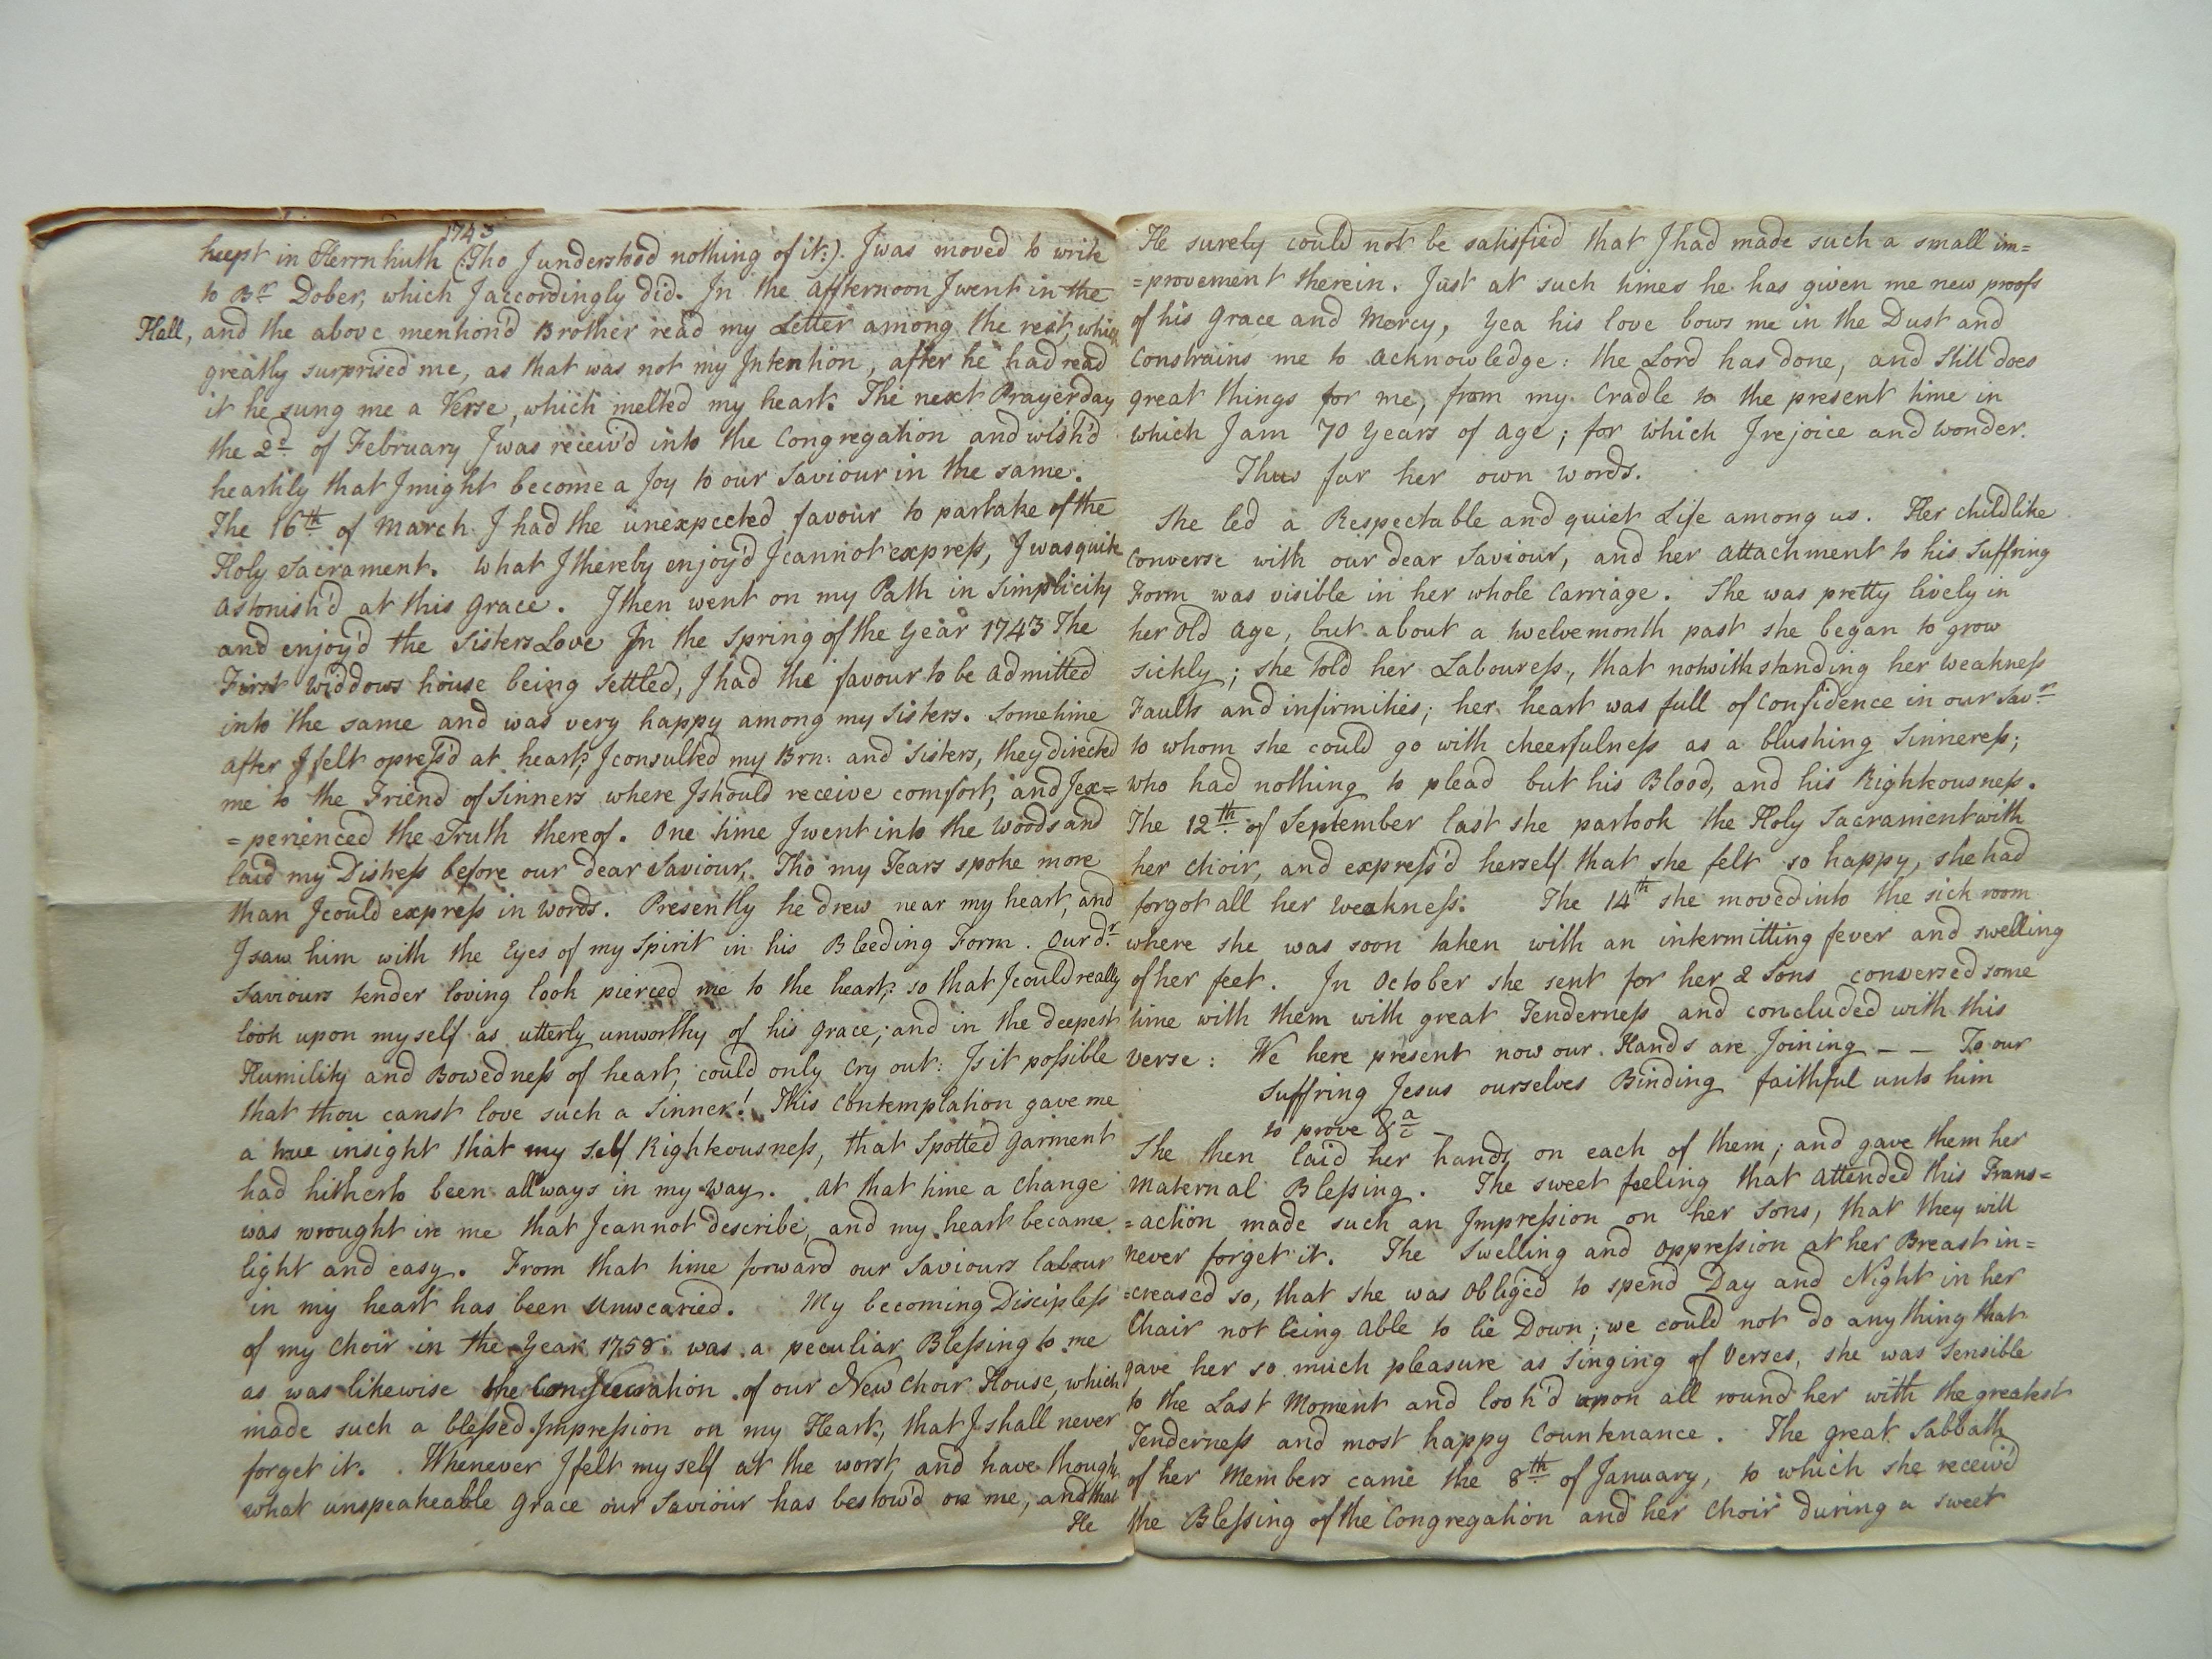 1743
keept in Herrnhuth (:Tho I understood nothing of it:). I was moved to write
to Br. Dober, which I accordingly did. In the affternoon I went in the
Hall, and the above mention'd Brother read my Letter among the rest, which
greatly surprised me, as that was not my Intention, after he had read
it he sung me a Verse, which melted my heart. The next Prayerday
the 2d of February I was receiv'd into the Congregation and wish'd
heartily that I might become a Joy to our Saviour in the same.
The 16th of March I had the unexpected favour to partake of the
Holy Sacrament. What I thereby enjoy'd I cannot express, I was quite
astonish'd at this Grace. I then went on my Path in Simplicity
and enjoy'd the Sisters Love In the Spring of the Year 1743 The
First Widdows house being settled, I had the favour to be admitted
into the same and was very happy among my Sisters. Sometime
after I felt opress'd at heart; I consulted my Brn: and Sisters, they directed
me to the Friend of Sinners where I should receive comfort, and I ex=
=perienced the Truth thereof. One time I went into the Woods and
laid my Distress before our dear Saviour, Tho my Tears spoke more
than I could express in Words. Presently he drew near my heart, and
I saw him with the Eyes of my Spirit in his Bleeding Form. Our dr
Saviours tender loving look pierced me to the heart; so that I could really
look upon myself as utterly unworthy of his Grace; and in the deepest
Humility and Bowedness of heart, could only Cry out: Is it possible
that thou canst love such a Sinner! This Contemplation gave me
a true insight that my Self Righteousness, that Spotted Garment
had hitherto been allways in my way. At that time a Change
was wrought in me that I cannot describe, and my heart became
light and easy. From that time forward our Saviours labour
in my heart has been Unwearied. My becoming Discipless
of my Choir in the Year 1758: was a peculiar Blessing to me
as was likewise the Consecration of our New Choir House, which
made such a blessed Impression on my Heart, that I shall never
forget it. Whenever I felt myself at the worst, and have thought
what unspeakeable Grace our Saviour has bestow'd on me, and that
He
He surely could not be satisfied that I had made such a small im=
=provement therein. Just at such times he has given me new proofs
of his Grace and Mercy, Yea his love bows me in the Dust and
Constrains me to acknowledge: the Lord has done, and Still does
great things for me, from my Cradle to the present time in
which I am 70 Years of Age; for which I rejoice and wonder.
Thus far her own words.
She led a Respectable and quiet Life among us. Her childlike
Converse with our dear Saviour, and her attachment to his Suffring
Form was visible in her whole Carriage. She was pretty lively in
her Old Age, but about a twelvemonth past she began to grow
sickly; she Told her Labouress, that notwithstanding her Weakness
Faults and infirmities; her heart was full of Confidence in our Savr
to whom she could go with cheerfulness as a blushing Sinneress;
who had nothing to plead but his Blood, and his Righteousness.
The 12th of September last she partook the Holy Sacrament with
her Choir, and express'd herself that she felt so happy, she had
forgot all her Weakness. The 14th she moved into the sick room
where she was soon taken with an intermitting fever and swelling
of her feet. In October she sent for her 2 Sons conversed some
time with them with great Tenderness and concluded with this
Verse: We here present now our Hands are Joining — — To our
Suffring Jesus ourselves Binding faithful unto him
to prove &c —
She then laid her hands on each of them; and gave them her
Maternal Blessing. The sweet feeling that attended this Trans=
=action made such an Impression on her Sons, that they will
never forget it. The Swelling and Oppression at her Breast in=
=creased so, that she was Obliged to spend Day and Night in her
Chair not being Able to lie Down; we could not do anything that
gave her so much pleasure as Singing of Verses, she was Sensible
to the Last Moment and look'd upon all round her with the greatest
Tenderness and most happy Countenance. The great Sabbath
of her Members came the 8th of January, to which she receiv'd
the Blessing of the Congregation and her Choir during a sweet